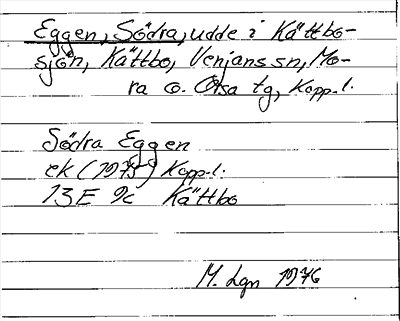 Eggen, Södra, udde i Kättbo-
sjön, Kättbo, Venjans sn, Mo-
ra o. Orsa tg, Kopp. l.
Södra Eggen
ek (1975) Kopp. l.
13E 9c Kättbo
M. Lgn 1976